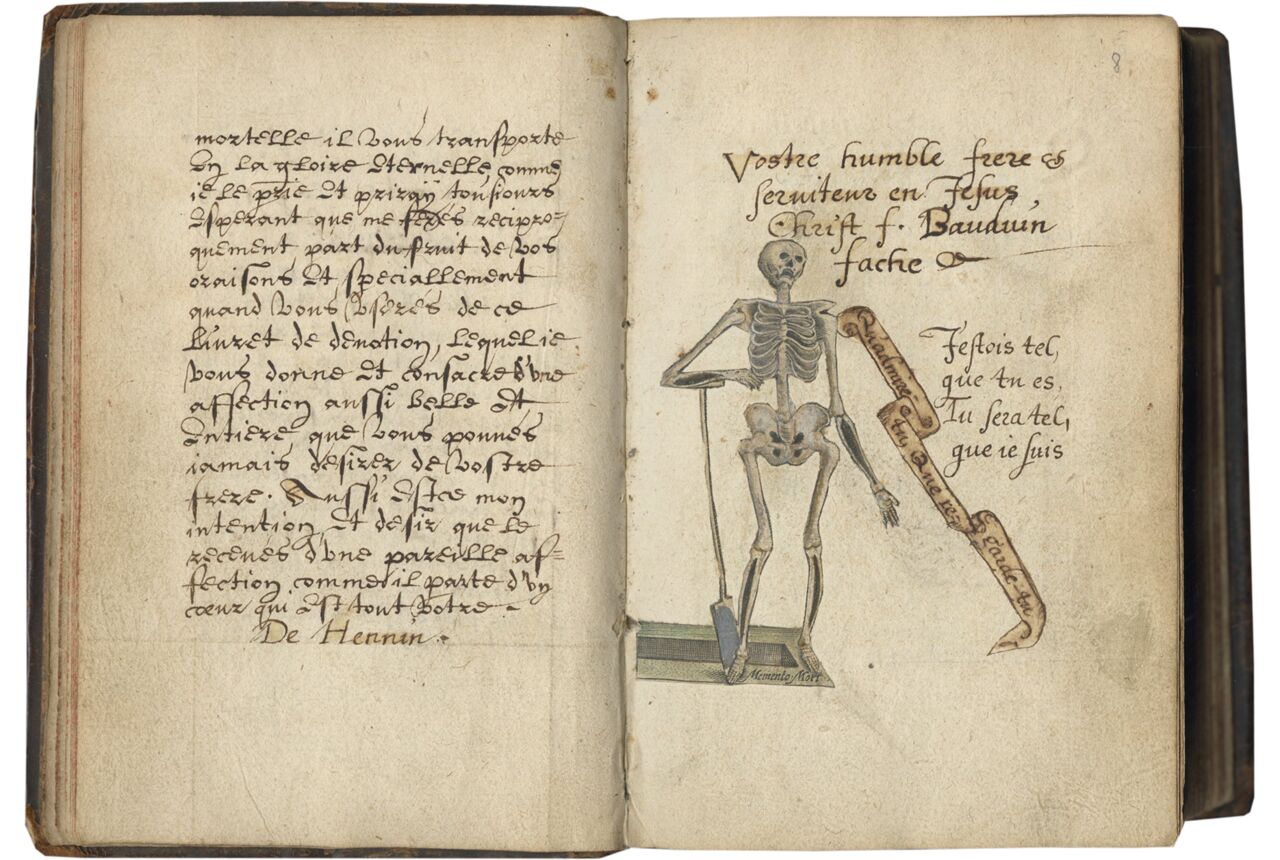 mortelle il vous transporte
en la gloire eternelle, comme
ie le prie et priray tousiours
esperant que me ferés recipro=
quement part du fruit de vos
oraisons et speciallement
quand vous userés de ce
livret de devotion, lequel ie
vous donne et consacre d'une
affection aussi belle et
entiere que vous pouves
iamais desirer de vostre
frere. Aussi est ce mon
intention, et desir que le
recevés d'une pareille af=
fection comme il parte d'un
cœur qui est tout vôtre.
De Hennin.
8
Vostre humble frere &
serviteur en Jesus
Christ f. Bauduin
fache
Qu'admire-tu, Que regarde-tu
J'estois tel,
que tu es,
Tu sera tel,
que ie suis
Memento Mori